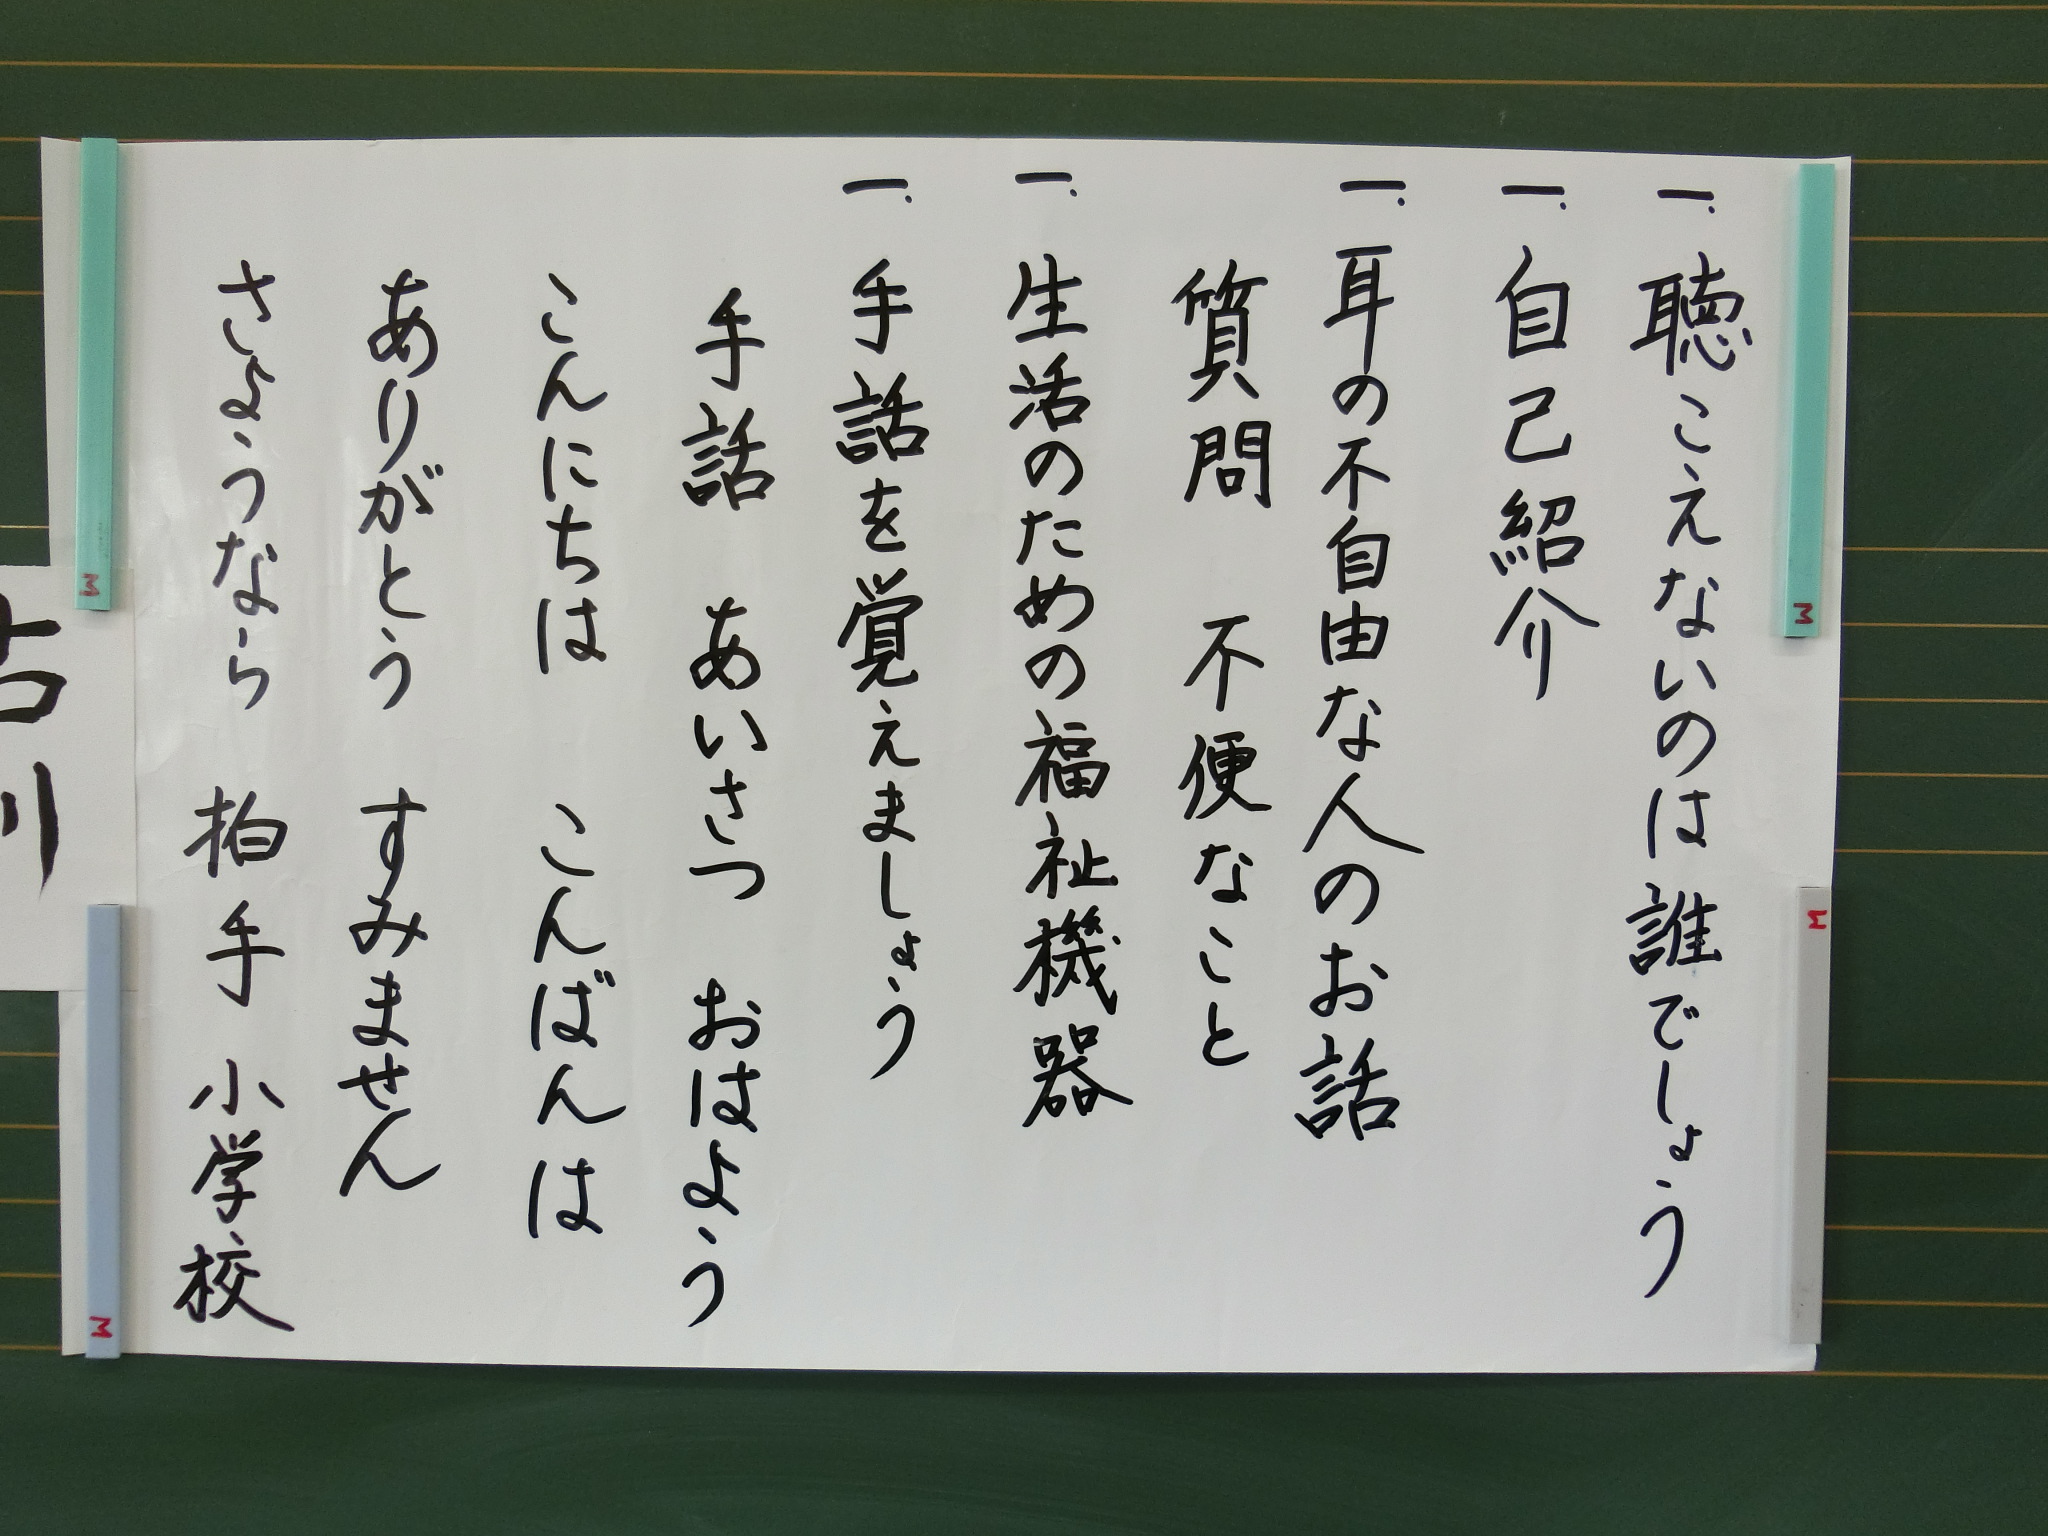 一.聴こえないのは誰でしょう
一.自己紹介
一.耳の不自由な人のお話
質問　不便なこと
一.生活のための福祉機器
一.手話を覚えましょう
手話　あいさつ　おはよう
こんにちは　こんばんは
ありがとう　すみません
さようなら　拍手　小学校
M
M
M
M